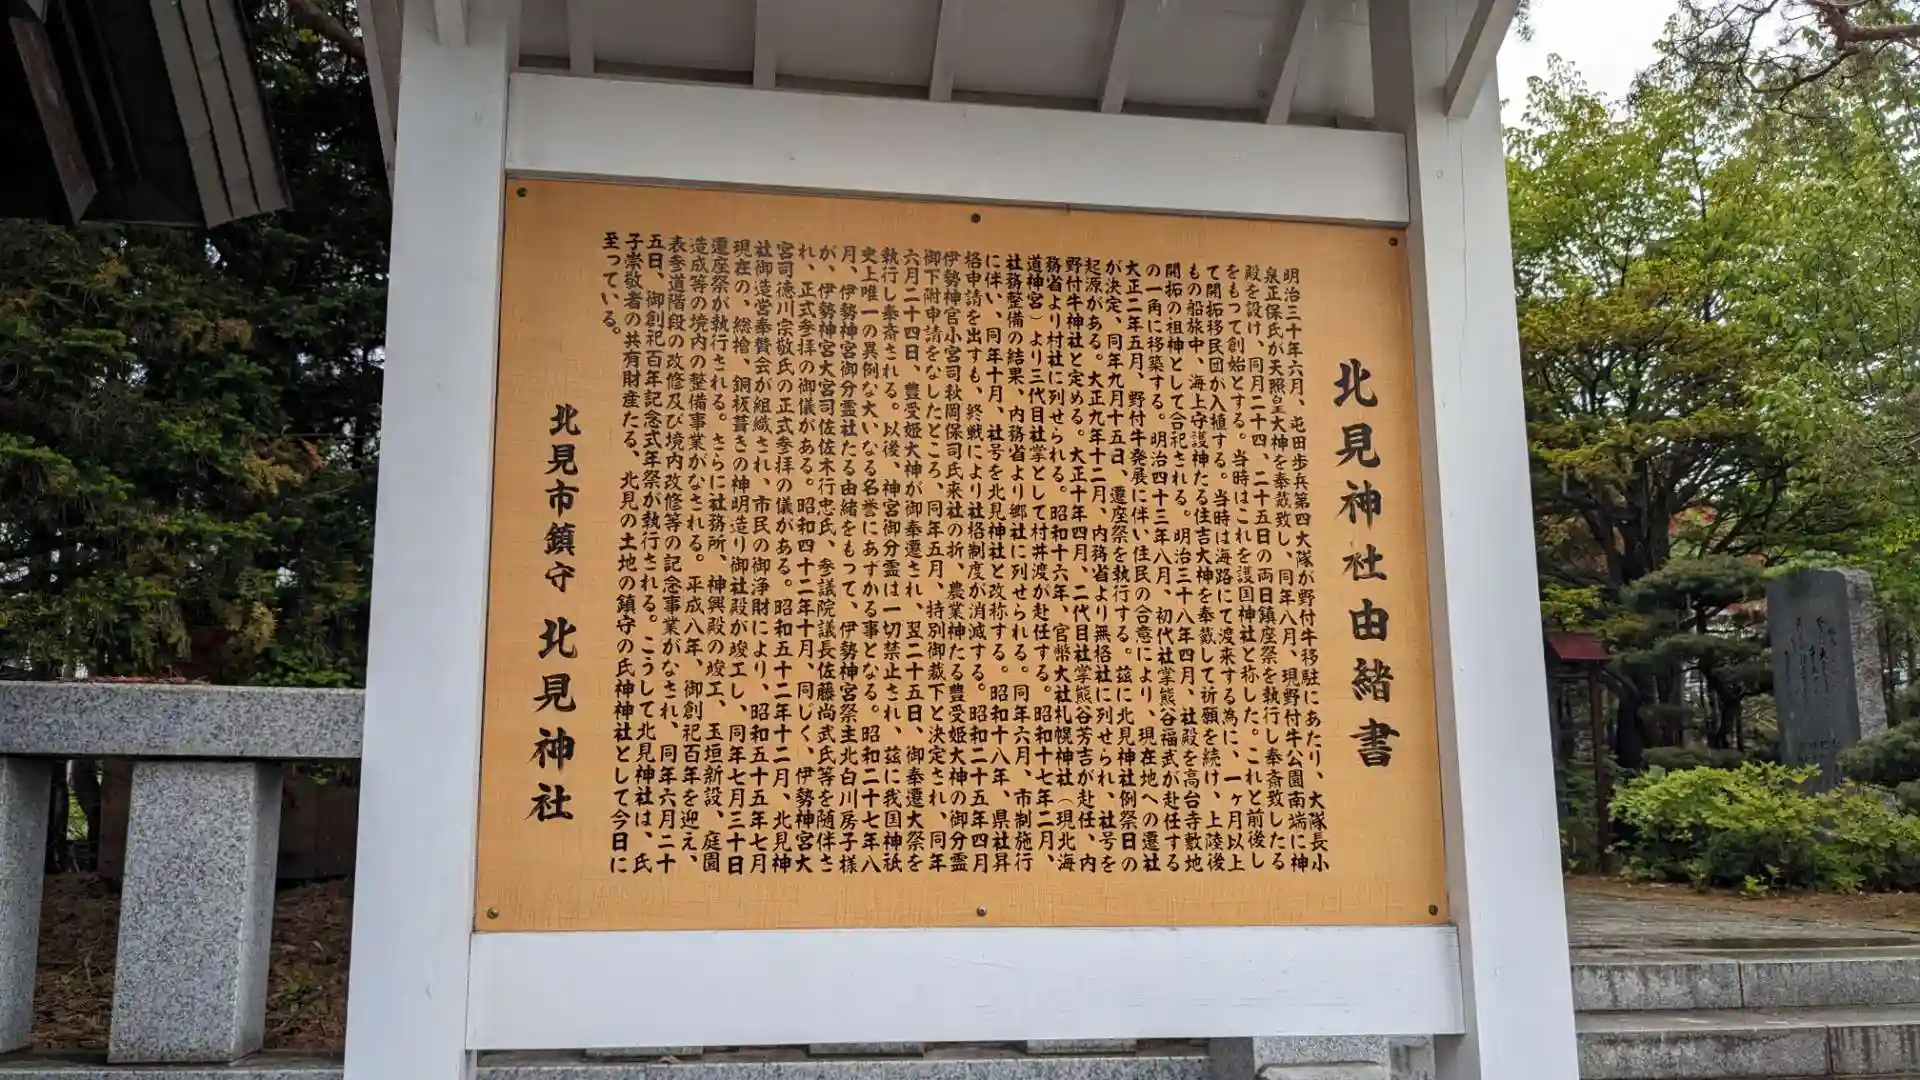 北見神社由緒書
明治三十年六月、屯田歩兵第四大隊が野付牛移駐にあたり、大隊長小
泉正保氏が天照皇大神を奉戴致し、同年八月、現野付牛公園南端に神
殿を設け、同月二十四、二十五日の両日鎮座祭を執行し奉斎致したる
をもって創始とする。当時はこれを護国神社と称した。これと前後し
て開拓移民団が入植する。当時は海路にて渡来する為に、一ヶ月以上
もの船旅中、海上守護神たる住吉大神を奉戴して祈願を続け、上陸後
開拓の祖神として合祀される。明治三十八年四月、社殿を高台寺敷地
の一角に移築する。明治四十三年八月、初代社掌熊谷福武が赴任する
大正二年五月、野付牛発展に伴い住民の合意により、現在地への遷社
が決定、同年九月十五日、遷座祭を執行する。茲に北見神社例祭日の
起源がある。大正九年十二月、内務省より無格社に列せられ、社号を
野付牛神社と定める。大正十年四月、二代目社掌熊谷芳吉が赴任、内
務省より村社に列せられる。昭和十六年、官幣大社札幌神社（現北海
道神宮）より三代目社掌として村井渡が赴任する。昭和十七年二月、
社務整備の結果、内務省より郷社に列せられる。同年六月、市制施行
に伴い、同年十月、社号を北見神社と改称する。昭和十八年、県社昇
格申請を出すも、終戦により社格制度が消滅する。昭和二十五年四月
伊勢神宮小宮司秋岡保司氏来社の折、農業神たる豊受姫大神の御分霊
御下附申請をなしたところ、同年五月、特別御裁下と決定され、同年
六月二十四日、豊受姫大神が御奉遷され、翌二十五日、御奉遷大祭を
執行し奉斎される。以後、神宮御分霊は一切禁止され、茲に我国神祇
史上唯一の異例な大いなる名誉にあずかる事となる。昭和二十七年八
月、伊勢神宮御分霊社たる由緒をもって、伊勢神宮祭主北白川房子様
が、伊勢神宮大宮司佐佐木行忠氏、参議院議長佐藤尚武氏等を随伴さ
れ、正式参拝の御儀がある。昭和四十二年十月、同じく、伊勢神宮大
宮司徳川宗敬氏の正式参拝の儀がある。昭和五十二年十二月、北見神
社御造営奉賛会が組織され、市民の御浄財により、昭和五十五年七月
現在の、総檜、銅板葺きの神明造り御社殿が竣工し、同年七月三十日
遷座祭が執行される。さらに社務所、神輿殿の竣工、玉垣新設、庭園
造成等の境内の整備事業がなされる。平成八年、御創祀百年を迎え、
表参道階段の改修及び境内改修等の記念事業がなされ、同年六月二十
五日、御創祀百年記念式年祭が執行される。こうして北見神社は、氏
子崇敬者の共有財産たる、北見の土地の鎮守の氏神神社として今日に
至っている。
北見市鎮守 北見神社